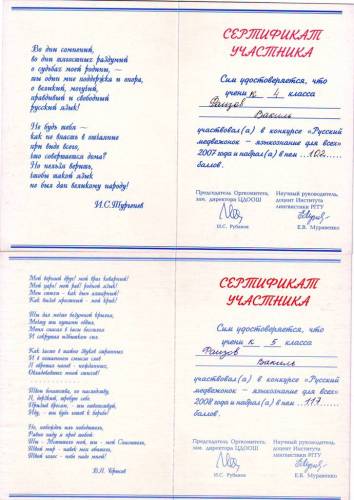 Во дни сомнений,
во дни тягостных раздумий
о судьбах моей родины, —
ты один мне поддержка и опора,
о великий, могучий,
правдивый и свободный
русский язык!
Не будь тебя —
как не впасть в отчаяние
при виде всего,
что совершается дома?
Но нельзя верить,
чтобы такой язык
не был дан великому народу!
И.С.Тургенев
СЕРТИФИКАТ
УЧАСТНИКА
Сим удостоверяется, что
учени к 4 класса
Фаизов
Вакиль
участвовал(а) в конкурсе «Русский
медвежонок – языкознание для всех»
2007 года и набрал(а) в нем 102
баллов.
Председатель Оргкомитета,
зам. директора ЦДООШ
И.С. Рубанов
Научный руководитель,
доцент Института
лингвистики РГГУ
Е.В. Муравенко
Мой верный друг! мой враг коварный!
Мой царь! мой раб! родной язык!
Мои стихи – как дым алтарный!
Как вызов яростный – мой крик!
Ты дал мечте безумной крылья,
Мечту ты путами обвил,
Меня спасал в часы бессилья
И сокрушал избытком сил.
Как часто в тайне звуков странных
И в потаенном смысле слов
Я обретал напев – нежданных,
Овладевавших мной стихов!
В.Я. Брюсов
СЕРТИФИКАТ
УЧАСТНИКА
Сим удостоверяется, что
учени к 5 класса
Фаизов
Вакиль
участвовал(а) в конкурсе «Русский
медвежонок – языкознание для всех»
2008 года и набрал(а) в нем 117
баллов.
Председатель Оргкомитета,
зам. директора ЦДООШ
И.С. Рубанов
Научный руководитель,
доцент Института
лингвистики РГГУ
Е.В. Муравенко